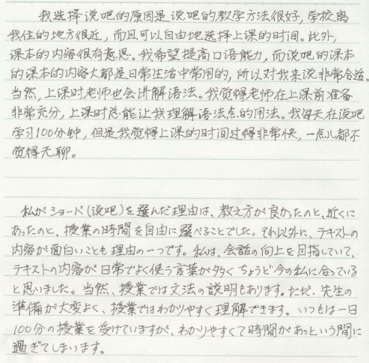 我选择说吧的原因是说吧的教学方法很好,学校离
我住的地方很近,而且可以自由地选择上课的时间。此外,
课本的内容很有意思。我希望提高口语能力,而说吧的课本
的课本的内容大都是日常生活中常用的,所以对我来说非常合适。
当然,上课时老师也会讲解语法。我觉得老师在上课前准备
非常充分,上课时总能让我理解语法点的用法。我每天在说吧
学习100分钟,但是我觉得上课的时间过得非常快,一点儿都不
觉得无聊。
私がショード(说吧)を選んだ理由は、教え方が良かったのと、近くに
あったのと、授業の時間を自由に選べることでした。それ以外に、テキストの
内容が面白いことも理由の一つです。私は、会話の向上を目指していて、
テキストの内容が日常でよく使う言葉が多く ちょうど今の私に合っている
と思いました。当然、授業では文法の説明もあります。ただ、先生の
準備が大変よく、授業ではわかりやすく理解できます。いつもは一日
100分の授業を受けていますが、わかりやすくて時間があっという間に
過ぎてしまいます。